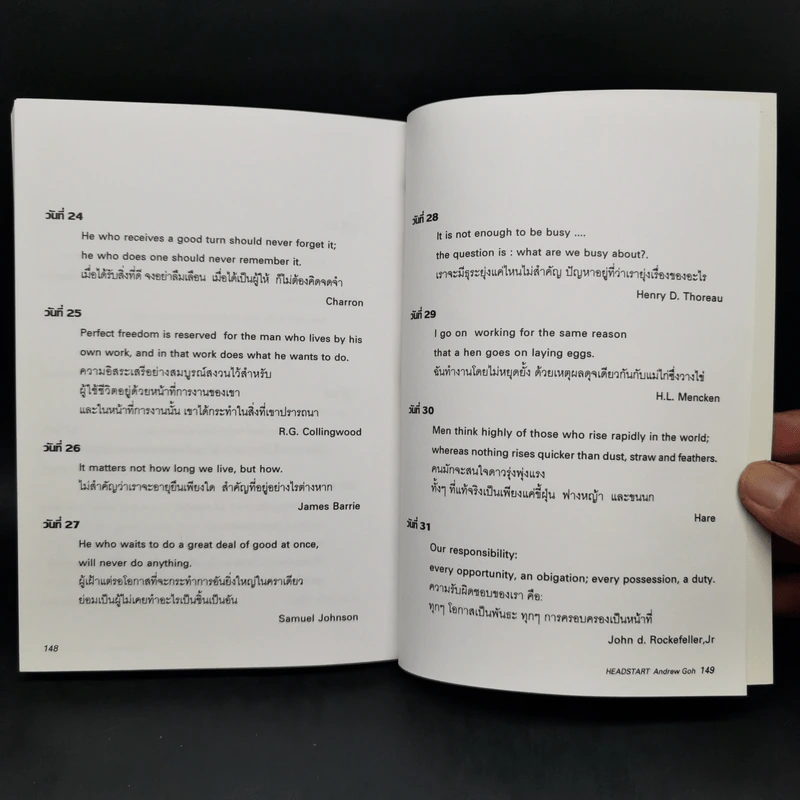 วันที่ 24
He who receives a good turn should never forget it;
he who does one should never remember it.
เมื่อได้รับสิ่งที่ดี จงอย่าลืมเลือน เมื่อได้เป็นผู้ให้ ก็ไม่ต้องคิดจดจำ
Charron
วันที่ 25
Perfect freedom is reserved for the man who lives by his
own work, and in that work does what he wants to do.
ความอิสระเสรีอย่างสมบูรณ์สงวนไว้สำหรับ
ผู้ใช้ชีวิตอยู่ด้วยหน้าที่การงานของเขา
และในหน้าที่การงานนั้น เขาได้กระทำในสิ่งที่เขาปรารถนา
R.G. Collingwood
วันที่ 26
It matters not how long we live, but how.
ไม่สำคัญว่าเราจะอายุยืนเพียงใด สำคัญที่อยู่อย่างไรต่างหาก
James Barrie
วันที่ 27
He who waits to do a great deal of good at once,
will never do anything.
ผู้เฝ้าแต่รอโอกาสที่จะกระทำการอันยิ่งใหญ่ในคราเดียว
ย่อมเป็นผู้ไม่เคยทำอะไรเป็นชิ้นเป็นอัน
Samuel Johnson
148
วันที่ 28
It is not enough to be busy ....
the question is : what are we busy about?.
เราจะมีธุระยุ่งแค่ไหนไม่สำคัญ ปัญหาอยู่ที่ว่าเรายุ่งเรื่องของอะไร
Henry D. Thoreau
วันที่ 29
I go on working for the same reason
that a hen goes on laying eggs.
ฉันทำงานโดยไม่หยุดยั้ง ด้วยเหตุผลดุจเดียวกันกับแม่ไก่ซึ่งวางไข่
H.L. Mencken
วันที่ 30
Men think highly of those who rise rapidly in the world;
whereas nothing rises quicker than dust, straw and feathers.
คนมักจะสนใจดาวรุ่งพุ่งแรง
ทั้งๆ ที่แท้จริงเป็นเพียงแค่ขี้ฝุ่น ฟางหญ้า และขนนก
Hare
วันที่ 31
Our responsibility:
every opportunity, an obigation; every possession, a duty.
ความรับผิดชอบของเรา คือ:
ทุกๆ โอกาสเป็นพันธะ ทุกๆ การครอบครองเป็นหน้าที่
John d. Rockefeller,Jr
HEADSTART Andrew Goh 149